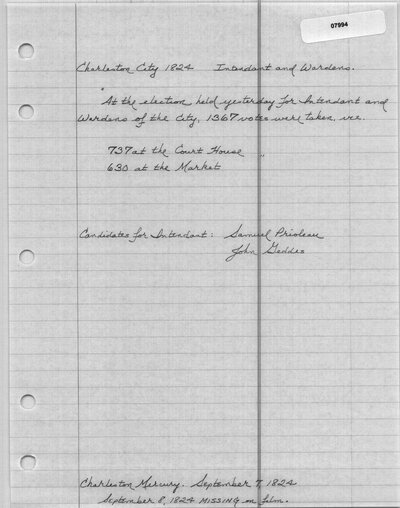 07994
Charleston City 1824 Intendant and Wardens.
"At the election held yesterday for Intendant and
Wardens of the City, 1367 votes were taken, viz.
737 at the Court House "
630 at the Market
Candidates for Intendant: Samuel Prioleau
John Geddes
Charleston Mercury. September 7, 1824
September 8, 1824 MISSING on film.